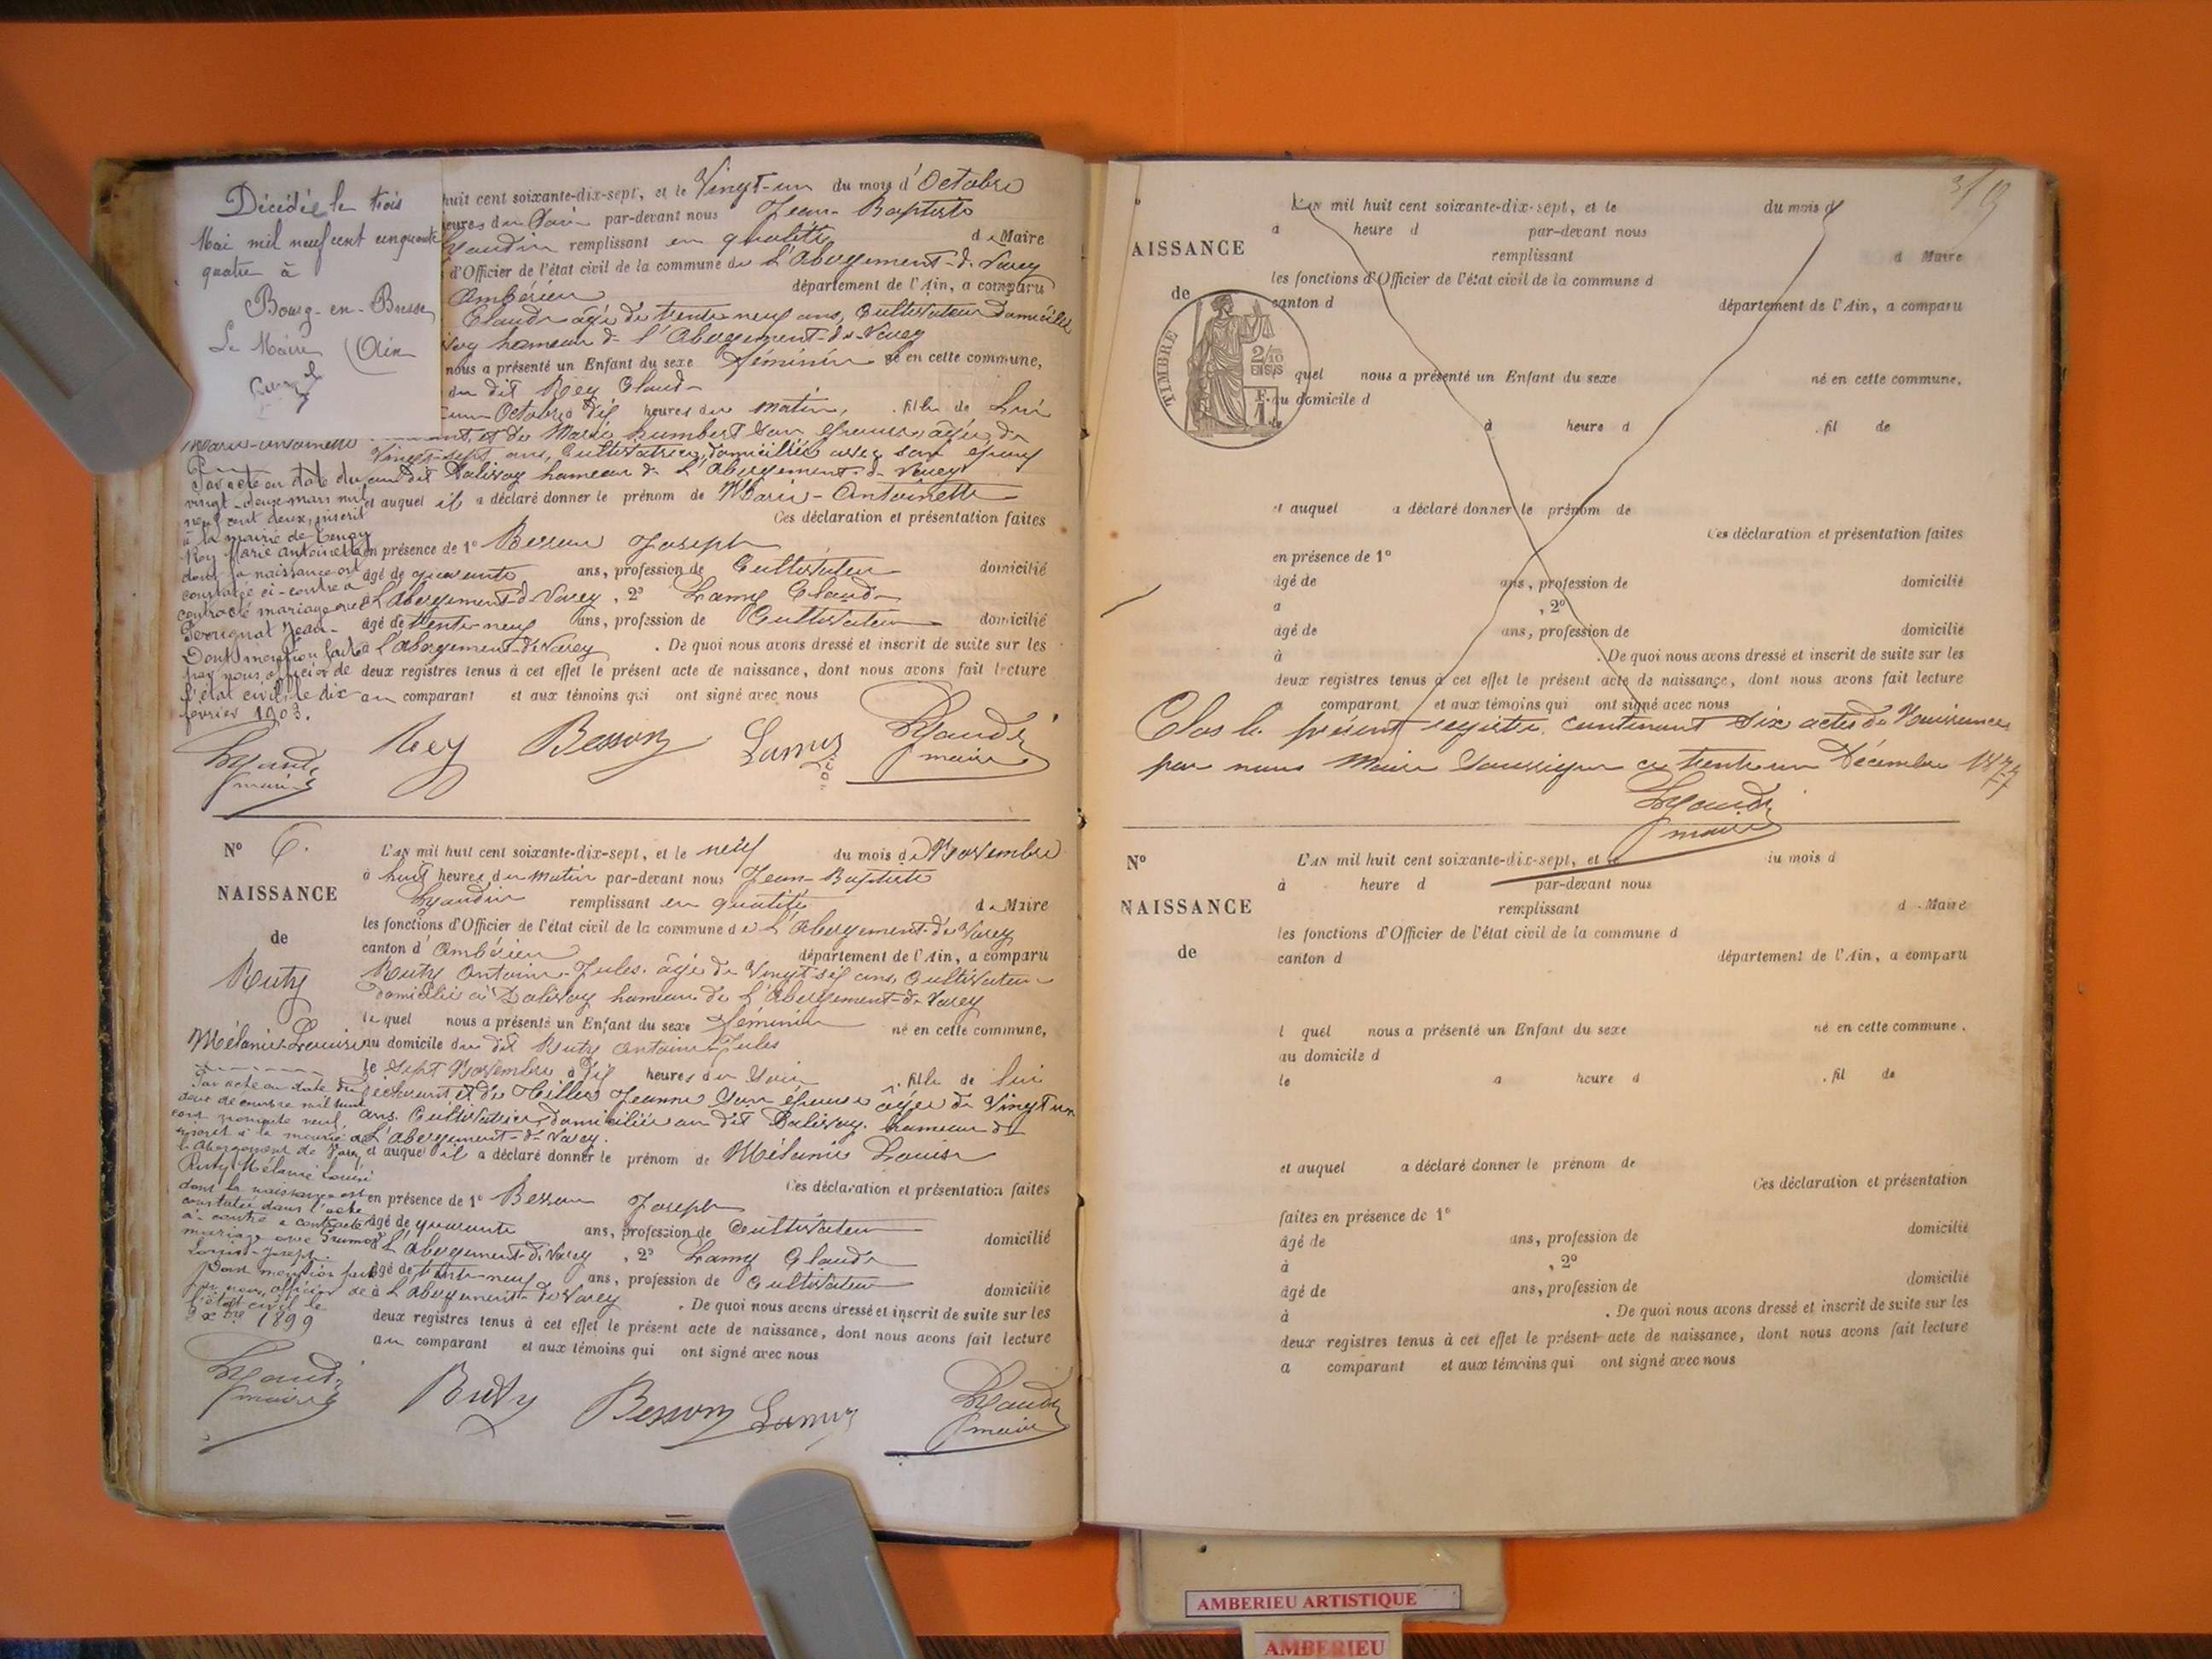 Décédée le trois
Mai mil neuf cent cinquante
quatre à
Bourg-en-Bresse
Le Maire (Ain
huit cent soixante-dix-sept, et le Vingt-un du mois d'Octobre
heures du Soir par-devant nous Jean-Baptiste
remplissant en qualité de Maire
d'Officier de l'état civil de la commune de L'Abergement-de-Varey
Ambérieu département de l'Ain, a comparu
Claude âgé de trente neuf ans, Cultivateur domicilié
hameau de l'Abergement-de-Varey
nous a présenté un Enfant du sexe féminin né en cette commune,
du dit Rey Claude
un Octobre à dix heures du matin, fille de Lui
Marie-Antoinette et de Marie humbert son épouse âgée de
Vingt-sept ans, Cultivatrice, domiciliée avec son époux
au dit Dalivoy hameau de L'Abergement-de-Varey
et auquel il a déclaré donner le prénom de Marie-Antoinette
Ces déclaration et présentation faites
en présence de 1° Besson Joseph
âgé de quarante ans, profession de Cultivateur domicilié
à L'Abergement-de-Varey, 2° Lamy Claude
âgé de trente-neuf ans, profession de Cultivateur domicilié
à l'Abergement-de-Varey . De quoi nous avons dressé et inscrit de suite sur les
deux registres tenus à cet effet le présent acte de naissance, dont nous avons fait lecture
au comparant et aux témoins qui ont signé avec nous
Par acte en date du
vingt-deux mars mil
neuf cent deux, inscrit
à la mairie de Tenay
Rey Marie Antoinette
dont la naissance est
constatée ci-contre a
contracté mariage avec
Perrignat Jean-
Dont mention faite
par nous officier de
l'état civil, le dix
février 1903.
maire
Rey Besson Lamy
maire
N° 6.
NAISSANCE
de
Buty
Mélanie-Louise
L'AN mil huit cent soixante-dix-sept, et le neuf du mois de Novembre
à huit heures du matin par-devant nous Jean-Baptiste
remplissant en qualité de Maire
les fonctions d'Officier de l'état civil de la commune de L'Abergement-de-Varey
canton d'Ambérieu département de l'Ain, a comparu
Buty Antoine-Jules âgé de Vingt-six ans, Cultivateur
domicilié à Dalivoy hameau de L'Abergement-de-Varey
lequel nous a présenté un Enfant du sexe féminin né en cette commune,
au domicile du dit Buty Antoine-Jules
le Sept Novembre à dix heures du Soir fille de lui
déclarant et de Tillier Jeanne son épouse âgée de Vingt un
ans, Cultivatrice, domiciliée au dit Dalivoy hameau de
L'Abergement-de-Varey.
et auquel il a déclaré donner le prénom de Mélanie Louise
Ces déclaration et présentation faites
en présence de 1° Besson Joseph
âgé de quarante ans, profession de Cultivateur domicilié
à L'Abergement-de-Varey, 2° Lamy Claude
âgé de trente-neuf ans, profession de Cultivateur domicilié
à L'Abergement-de-Varey . De quoi nous avons dressé et inscrit de suite sur les
deux registres tenus à cet effet le présent acte de naissance, dont nous avons fait lecture
au comparant et aux témoins qui ont signé avec nous
Par acte en date du
deux décembre mil huit
cent nonante neuf,
inscrit à la mairie de
l'Abergement de Varey
Buty Mélanie Louise
dont la naissance est
constatée dans l'acte
ci-contre a contracté
mariage avec
Louis-Joseph.
Dont mention faite
par nous, officier de
l'état civil le
2 xbre 1899
maire
Buty Besson Lamy
maire
AISSANCE
de
TIMBRE
2/10
EN SUS
L'AN mil huit cent soixante-dix-sept, et le du mois d
à heure d par-devant nous
remplissant d Maire
les fonctions d'Officier de l'état civil de la commune d
canton d département de l'Ain, a comparu
quel nous a présenté un Enfant du sexe né en cette commune,
au domicile d
à heure d . fil de
et auquel a déclaré donner le prénom de
Ces déclaration et présentation faites
en présence de 1°
âgé de ans, profession de domicilié
à , 2°
âgé de ans, profession de domicilié
à . De quoi nous avons dressé et inscrit de suite sur les
deux registres tenus à cet effet le présent acte de naissance, dont nous avons fait lecture
comparant et aux témoins qui ont signé avec nous
Clos le présent registre contenant Six actes de Naissances
par nous Maire Soussigné ce trente un Décembre 1877
maire
N°
NAISSANCE
de
L'AN mil huit cent soixante-dix-sept, et le du mois d
à heure d par-devant nous
remplissant d Maire
les fonctions d'Officier de l'état civil de la commune d
canton d département de l'Ain, a comparu
l quel nous a présenté un Enfant du sexe né en cette commune.
au domicile d
le a heure d . fil de
et auquel a déclaré donner le prénom de
Ces déclaration et présentation
faites en présence de 1°
âgé de ans, profession de domicilié
à , 2°
âgé de ans, profession de domicilié
à . De quoi nous avons dressé et inscrit de suite sur les
deux registres tenus à cet effet le présent acte de naissance, dont nous avons fait lecture
a comparant et aux témoins qui ont signé avec nous
AMBERIEU ARTISTIQUE
AMBERIEU